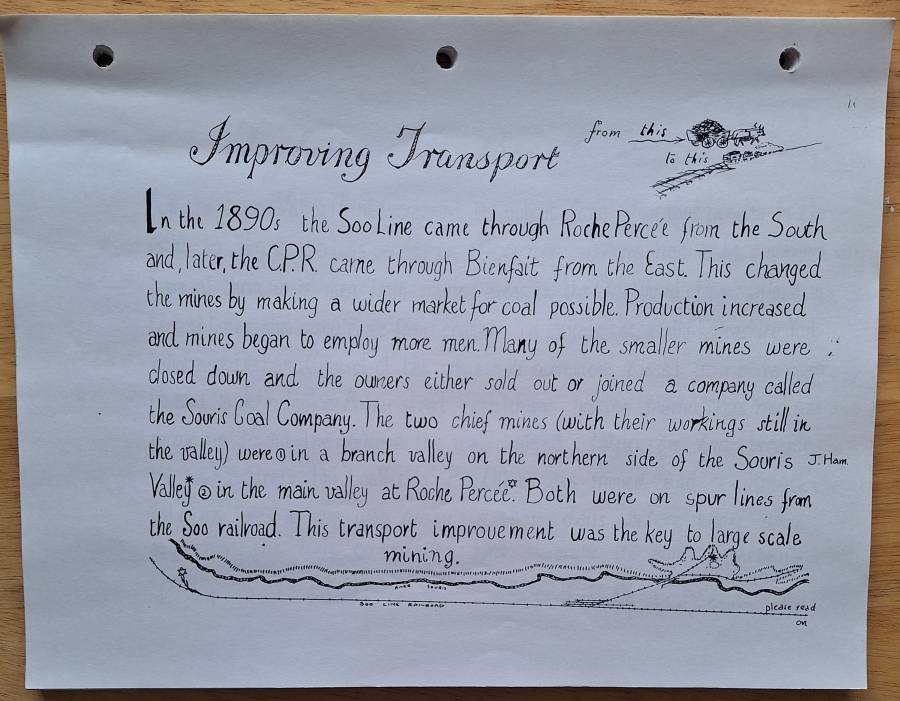 11
Improving Transport
from this
to this
In the 1890s the Soo Line came through Roche Percée from the South
and, later, the C.P.R. came through Bienfait from the East. This changed
the mines by making a wider market for coal possible. Production increased
and mines began to employ more men. Many of the smaller mines were
closed down and the owners either sold out or joined a company called
the Souris Coal Company. The two chief mines (with their workings still in
the valley) were ① in a branch valley on the northern side of the Souris J. Ham.
Valley* ② in the main valley at Roche Percée*. Both were on spur lines from
the Soo railroad. This transport improvement was the key to large scale
mining.
RIVER SOURIS
SOO LINE RAILROAD
please read
on